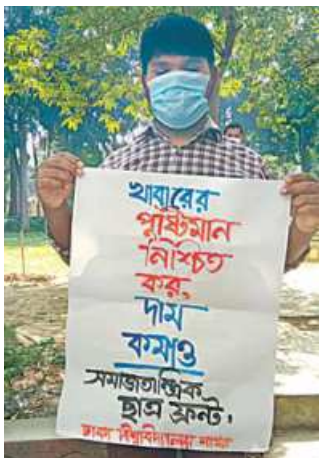 খাবারের
পুষ্টিমান
নিশ্চিত
কর,
দাম
কমাও
সমাজতান্ত্রিক
ছাত্র ফ্রন্ট,
ঢাকা বিশ্ববিদ্যালয় শাখা